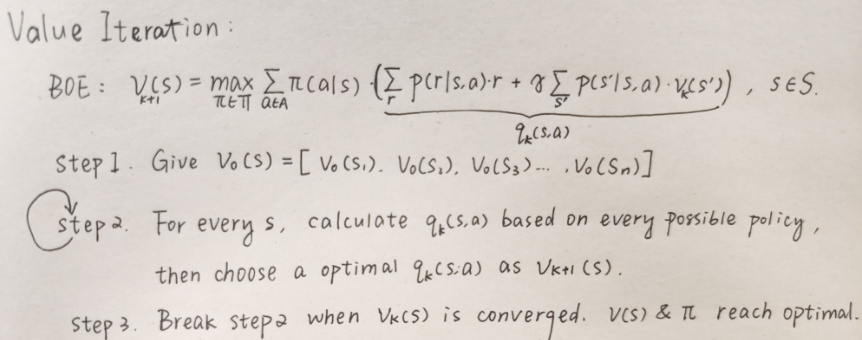 Value Iteration:
BOE: V_{k+1}(s) = max_{π∈Π} Σ_{a∈A} π(a|s) (Σ_r p(r|s,a)·r + γ Σ_{s'} p(s'|s,a)·V_k(s')), s∈S.
q_k(s,a)
Step 1. Give V_0(s) = [V_0(s_1). V_0(s_2), V_0(s_3)... , V_0(s_n)]
step 2. For every s, calculate q_k(s,a) based on every possible policy,
then choose a optimal q_k(s,a) as V_{k+1}(s).
step 3. Break step2 when V_k(s) is converged. V(s) & π reach optimal.